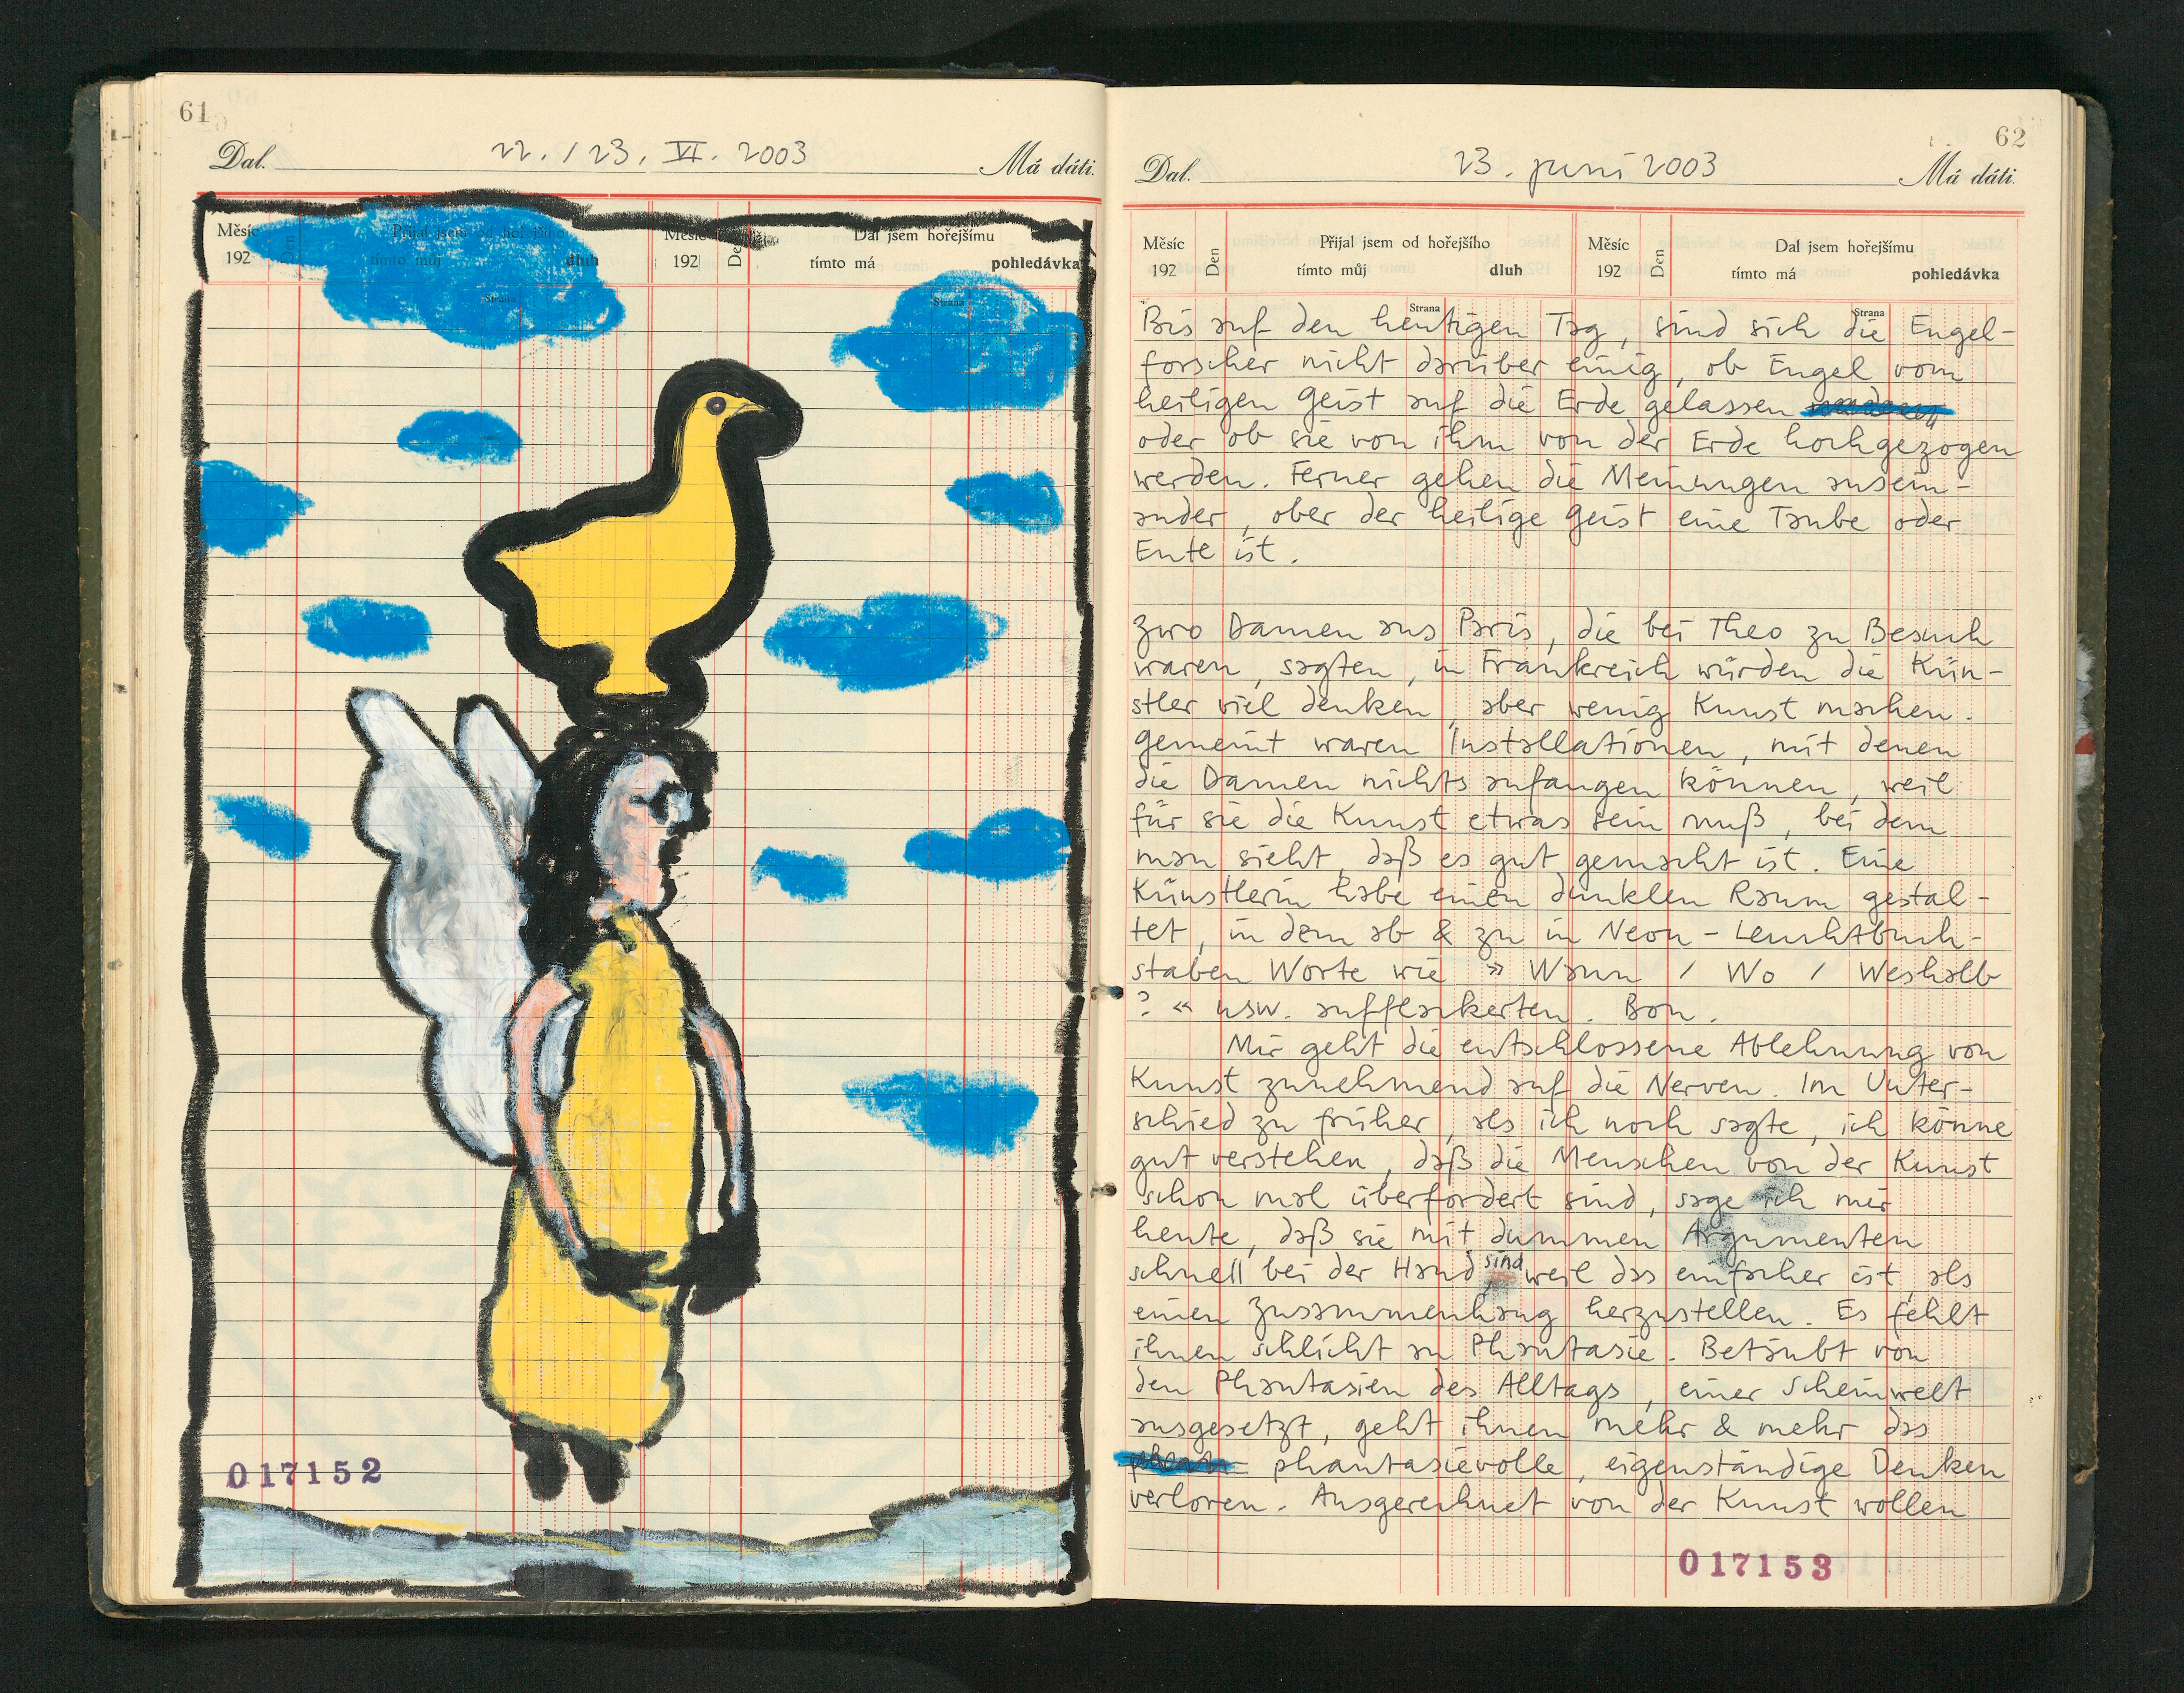 61
Dal. 22. / 23. VI. 2003 Má dáti.
Měsíc 192 Den Přijal jsem od hořejšího tímto můj dluh Měsíc 192 Den Dal jsem hořejšímu tímto má pohledávka
Strana Strana
017152
62
Dal. 23. juni 2003 Má dáti.
Měsíc Den Přijal jsem od hořejšího Měsíc Den Dal jsem hořejšímu
192 tímto můj dluh 192 tímto má pohledávka
Strana Strana
Bis auf den heutigen Tag, sind sich die Engel-
forscher nicht darüber einig, ob Engel vom
heiligen Geist auf die Erde gelassen
oder ob sie von ihm von der Erde hochgezogen
werden. Ferner gehen die Meinungen ausein-
ander, ober der heilige Geist eine Taube oder
Ente ist.
Zwo Damen aus Paris, die bei Theo zu Besuch
waren, sagten, in Frankreich würden die Kün-
stler viel denken, aber wenig Kunst machen.
Gemeint waren Installationen, mit denen
die Damen nichts anfangen können, weil
für sie die Kunst etwas sein muß, bei dem
man sieht, daß es gut gemacht ist. Eine
Künstlerin habe einen dunklen Raum gestal-
tet, in dem ab & zu in Neon-Leuchtbuch-
staben Worte wie » Wann / Wo / Weshalb
? « usw. aufflackerten. Bon.
Mir geht die entschlossene Ablehnung von
Kunst zunehmend auf die Nerven. Im Unter-
schied zu früher, als ich noch sagte, ich könne
gut verstehen, daß die Menschen von der Kunst
schon mal überfordert sind, sage ich mir
heute, daß sie mit dummen Argumenten
schnell bei der Hand sind, weil das einfacher ist, als
einen Zusammenhang herzustellen. Es fehlt
ihnen schlicht an Phantasie. Betäubt von
den Phantasien des Alltags, einer Scheinwelt
ausgesetzt, geht ihnen mehr & mehr das
phantasievolle, eigenständige Denken
verloren. Ausgerechnet von der Kunst wollen
017153